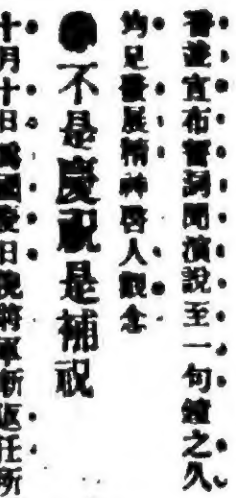 者並宣布誓詞聞演說至一句鐘之久
均見發展精神啓人觀念
●不是慶祝是補祝
十月十日爲國慶日龍將軍新返任所